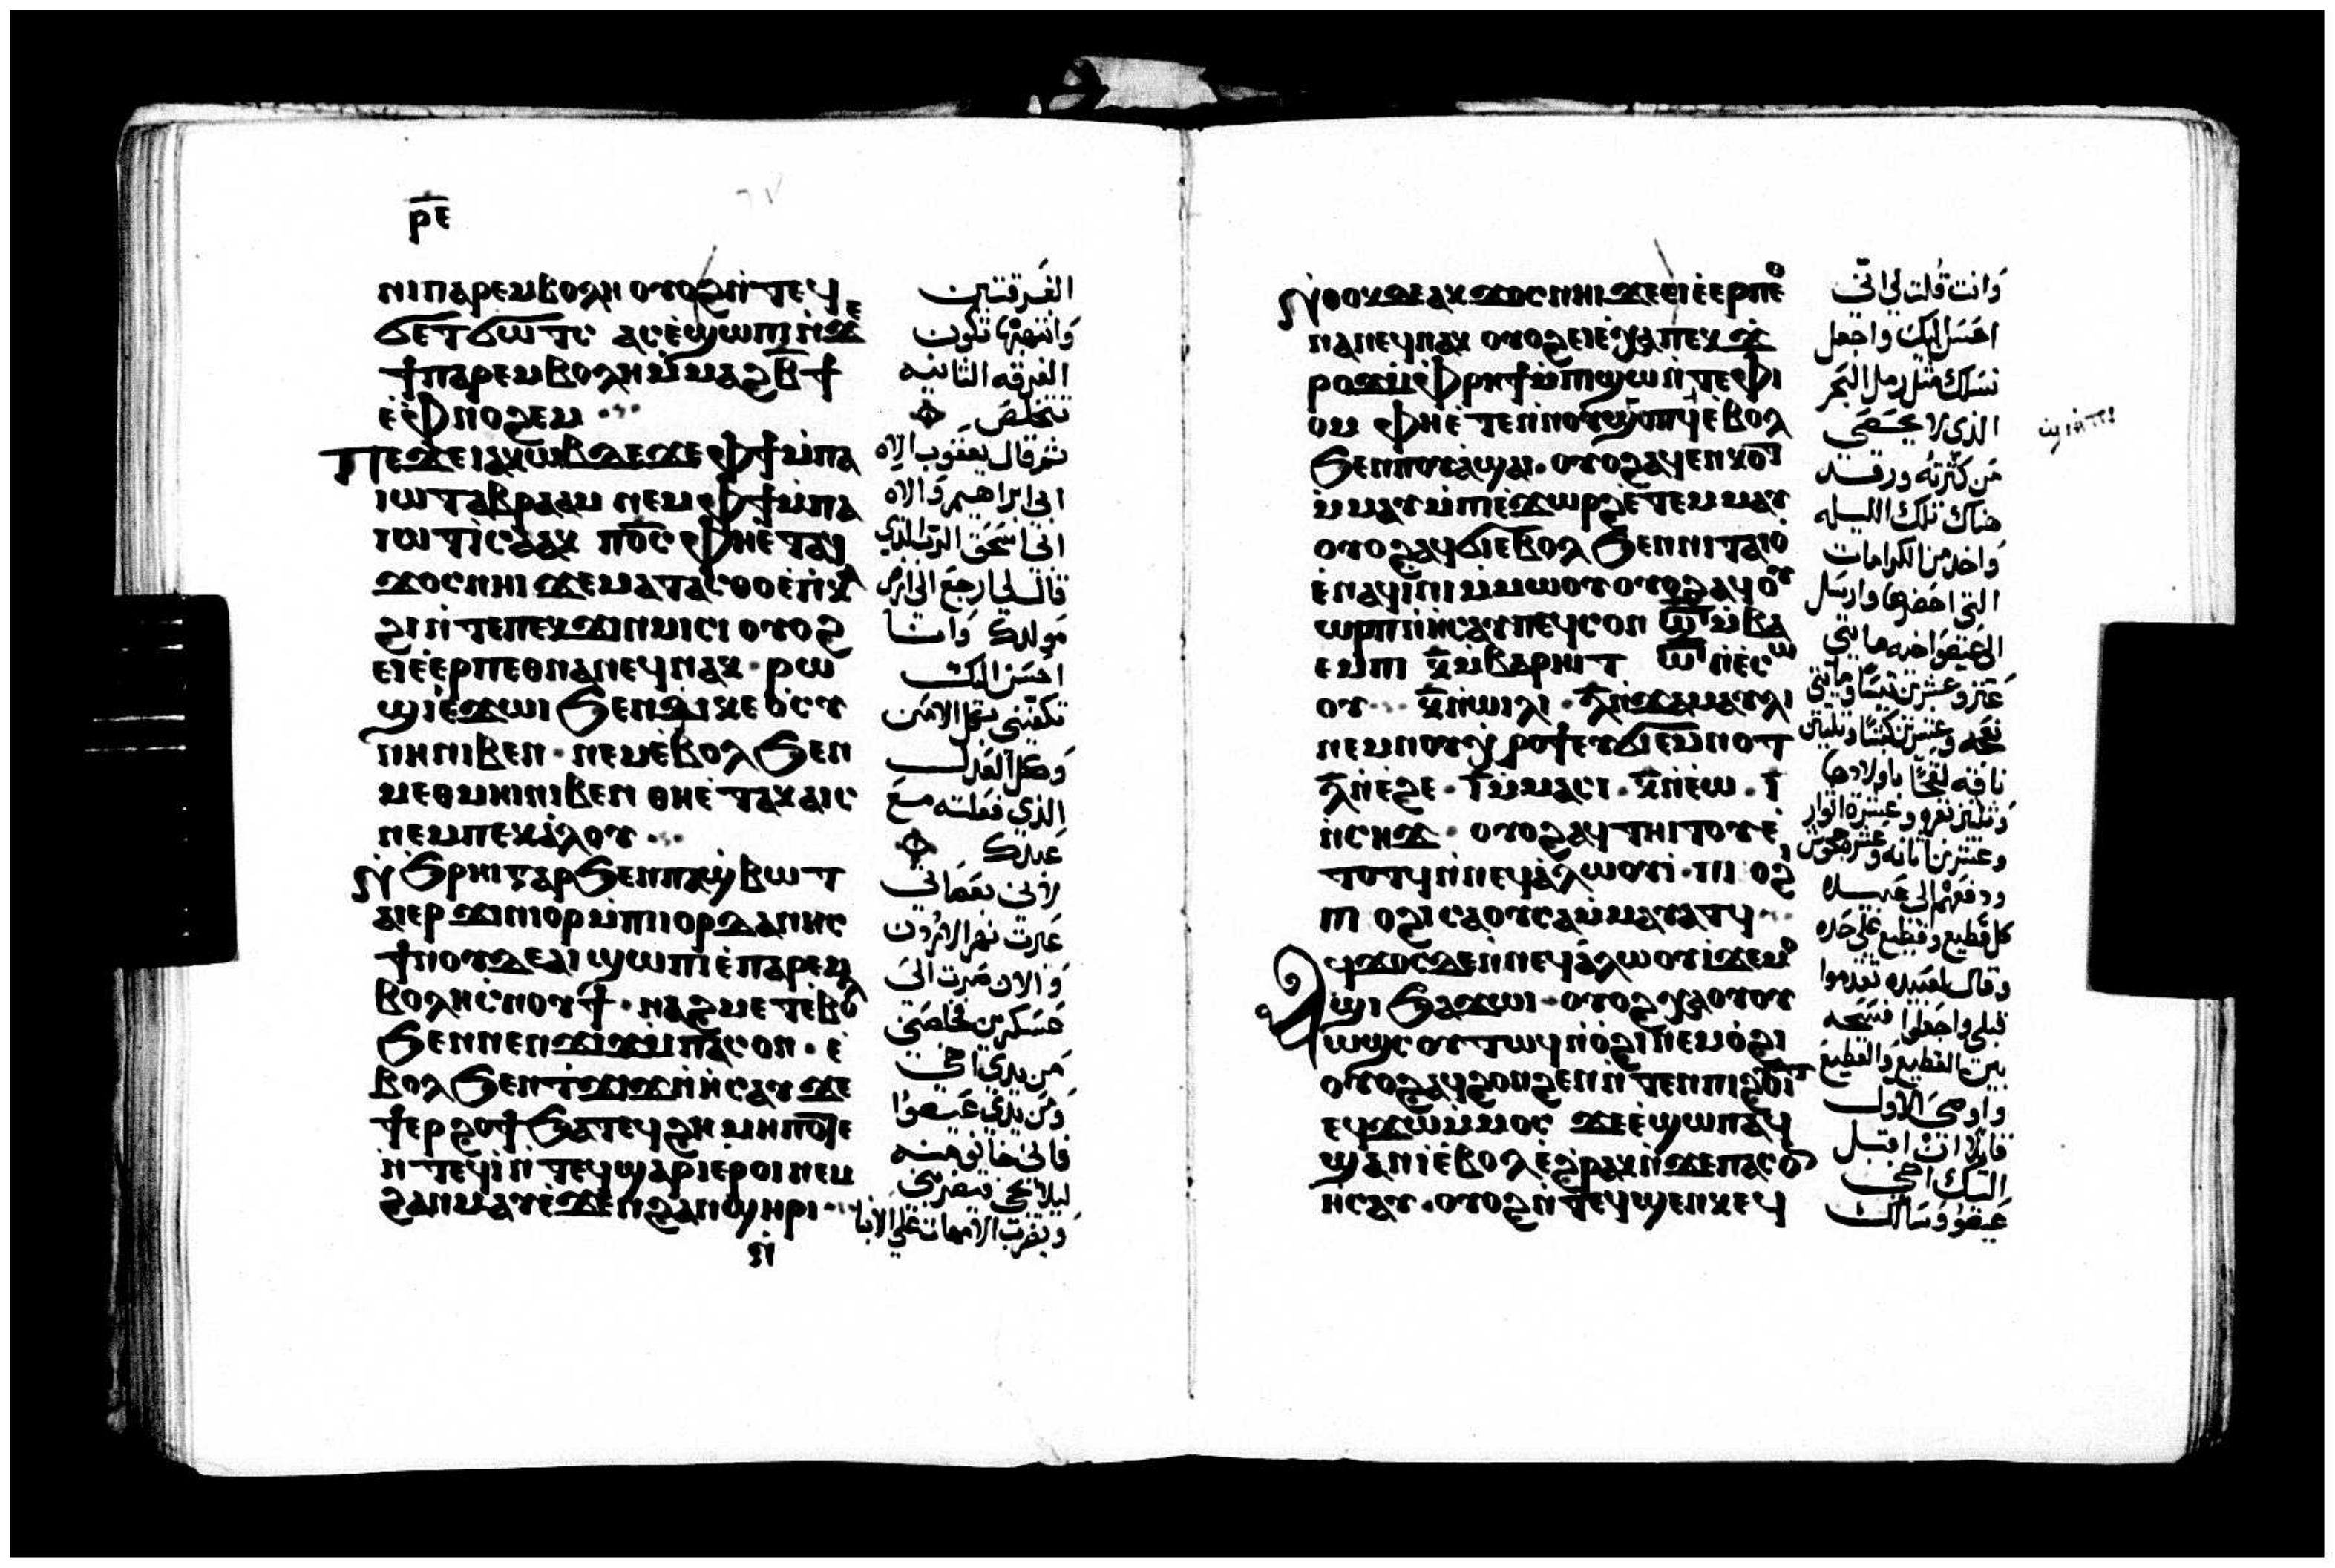 ⲣⲉ
ⲛⲓⲡⲁⲣⲉⲙⲃⲟⲗⲏ ⲟⲩⲟϩ ⲛ̀ⲧⲉϥ
ϭⲉⲧϭⲱⲧⲥ ⲁⲥⲉ̀ϣⲱⲡⲓ ⲛ̀ϫⲉ
ϯⲡⲁⲣⲉⲙⲃⲟⲗⲏ ⲙ̀ⲙⲁϩⲃ̅ϯ
ⲉ̀ⲫⲛⲟϩⲉⲙ
ⲡⲉϫⲉ ⲓⲁⲕⲱⲃ ϫⲉ ϫⲉ ⲫϯ ⲙ̀ⲡⲁ
ⲓⲱⲧ ⲁⲃⲣⲁⲁⲙ ⲛⲉⲙ ⲫϯ ⲙ̀ⲡⲁ
ⲓⲱⲧ ⲓⲥⲁⲁⲕ ⲡⲟ̅ⲥ̅ ⲫⲏⲉ̀ⲧⲁϥ
ϫⲟⲥ ⲛⲏⲓ ϫⲉ ⲙⲁⲧⲁⲥⲑⲟ ⲉ̀ⲡⲕⲁ
ϩⲓ ⲛ̀ⲧⲉ ⲡⲉⲕϫⲓⲛⲙⲓⲥⲓ ⲟⲩⲟϩ
ⲉⲓⲉ̀ⲉⲣⲡⲉⲑⲛⲁⲛⲉϥ ⲛⲁⲕ · ⲣⲱ
ϣⲓ ⲉ̀ϫⲱⲓ ϧⲉⲛ ϫⲓⲕⲉⲟ̀ⲥⲩ
ⲛⲏ ⲛⲓⲃⲉⲛ · ⲛⲉⲙ ⲉ̀ⲃⲟⲗ ϧⲉⲛ
ⲙⲉⲑⲙⲏⲓ ⲛⲓⲃⲉⲛ ⲑⲏⲉ̀ⲧⲁⲕⲁⲓⲥ
ⲛⲉⲙ ⲡⲉⲕⲁ̀ⲗⲟⲩ
ⲛ̀ϧⲣⲏⲓ ⲅⲁⲣ ϧⲉⲛ ⲡⲁϣⲃⲱⲧ
ⲁⲓⲉⲣϫⲓⲛⲓⲟⲣ ⲙ̀ⲡⲓⲓⲟⲣⲇⲁⲛⲏⲥ
ϯⲛⲟⲩ ϫⲉ ⲁⲓϣⲱⲡⲓ ⲉ̀ⲡⲁⲣⲉⲙ
ⲃⲟⲗⲏ ⲥ̀ⲛⲟⲩϯ · ⲛⲁϩⲙⲉⲧ ⲉ̀ⲃⲟⲗ
ϧⲉⲛ ⲛⲉⲛϫⲓϫ ⲙ̀ⲡⲁⲥⲟⲛ · ⲉ̀
ⲃⲟⲗ ϧⲉⲛ ⲧ̀ϫⲓϫ ⲛ̀ⲏⲥⲁⲩ ϫⲉ
ϯⲉⲣϩⲟϯ ϧⲁⲧⲉϥϩⲏ ⲙⲏⲡⲟⲧⲉ
ⲛ̀ⲧⲉϥⲓ̀ ⲛ̀ⲧⲉϥϣⲁⲣⲓ ⲉ̀ⲣⲟⲓ ⲛⲉⲙ
ϩⲁⲛⲙⲁⲩ ⲉ̀ϫⲉⲛ ϩⲁⲛϣⲏⲣⲓ
ⲛ̀
الفرقتين
وانتهرها تكون
الفرقه الثانيه
تتخلص
ثم قال يعقوب الاه
ابي ابراهيم والاه
ابي اسحق الرب الذي
قال لي ارجع الى ارض
مولدك وانا
احسن اليك
تكفيني بكل الامن
وكل العدل
الذي فعلته مع
عبدك
لاني بعصاتي
عبرت نهر الاردن
والان صرت الى
عسكرين خلصني
من يدي اخي
ومن يدي عيصوا
فاني خايف منه
ليلا يجي فيضربني
ويضرب الامهات علي الابنا
ⲛ̀ⲑⲟⲕ ϫⲉ ⲁⲕϫⲟⲥ ⲛⲏⲓ ϫⲉ ⲉⲓⲉ̀ⲉⲣⲡⲉⲑ
ⲛⲁⲛⲉϥ ⲛⲁⲕ ⲟⲩⲟϩ ⲉⲓⲉ̀ⲭⲁ ⲡⲉⲕϫ
ⲣⲟϫ ⲙ̀ⲫⲣⲏϯ ⲙ̀ⲡϣⲱ ⲛ̀ⲧⲉ ⲫⲓ
ⲟⲙ ⲫⲏⲉ̀ⲧⲉⲛⲛⲟⲩϣⲟⲡϥ ⲉ̀ⲃⲟⲗ
ϧⲉⲛ ⲡⲟⲩⲁ̀ϣⲁⲓ · ⲟⲩⲟϩ ⲁϥⲉⲛⲕⲟⲧ
ⲙ̀ⲙⲁⲩ ⲙ̀ⲡⲓⲉ̀ϫⲱⲣϩ ⲉ̀ⲧⲉⲙⲙⲁⲩ
ⲟⲩⲟϩ ⲁϥϭⲓ ⲉ̀ⲃⲟⲗ ϧⲉⲛ ⲛⲓⲧⲁⲓⲟ̀
ⲉ̀ⲛⲁϥⲓ̀ⲛⲓ ⲙ̀ⲙⲱⲟⲩ ⲟⲩⲟϩ ⲁϥⲟⲩ
ⲱⲣⲡ ⲛ̀ⲏⲥⲁⲩ ⲡⲉϥⲥⲟⲛ ⲥ̅ ⲙ̀ⲃⲁ
ⲉⲙⲡⲓ ⲕ̅ ⲙ̀ⲃⲁⲣⲏⲓⲧ ⲥ̅ ⲛ̀ⲉ̀ⲥⲱ
ⲟⲩ · ⲕ̅ ⲛ̀ⲱⲓⲗⲓ · ⲗ̅ ⲛ̀ϫⲁⲙⲁⲩⲗⲓ
ⲛⲉⲙ ⲛⲟⲩⲭⲣⲟϯ ⲉⲩϭⲓⲉⲙⲛⲟⲧ
ⲗ̅ ⲛ̀ⲉ̀ϩⲉ · ⲓ̅ ⲙ̀ⲙⲁⲥⲓ · ⲕ̅ ⲛ̀ⲉ̀ⲱ · ⲓ̅
ⲛ̀ⲥⲏϫ · ⲟⲩⲟϩ ⲁϥⲧⲏⲓⲧⲟⲩ ⲉ̀
ⲧⲟⲧϥ ⲛ̀ⲛⲉϥⲁ̀ⲗⲱⲟⲩⲓ · ⲡⲓ ⲟϩ
ⲡⲓ ⲟϩⲓ ⲥⲁⲟⲩⲥⲁ ⲙ̀ⲙⲁⲩⲁⲧϥ
ⲁϥϫⲟⲥ ϫⲉ ⲛ̀ⲛⲉϥⲁ̀ⲗⲱⲟⲩⲓ ϫⲉ ⲙⲟ
ϣⲓ ϧⲁϫⲱⲓ · ⲟⲩⲟϩ ⲭⲁ ⲟⲩⲟⲩ
ⲱϣⲥ ⲟⲩⲧⲱϥ ⲛ̀ⲟ̀ϩⲓ ⲛⲉⲙ ⲟ̀ϩⲓ
ⲟⲩⲟϩ ⲁϥϩⲟⲛϩⲉⲛ ⲛ̀ⲧⲉⲛ ⲡⲓϩⲟⲩⲓⲧ
ⲉϥϫⲱ ⲙ̀ⲙⲟⲥ ϫⲉ ⲉ̀ϣⲱⲡ ⲁϥ
ϣⲁⲛⲓ̀ ⲉ̀ⲃⲟⲗ ⲉ̀ϩⲣⲁⲕ ⲛ̀ϫⲉ ⲡⲁⲥⲟⲛ
ⲏⲥⲁⲩ · ⲟⲩⲟϩ ⲛ̀ⲧⲉϥϣⲉⲛⲕ ⲉϥ
وانت قلت لي اني
احسن اليك واجعل
نسلك مثل رمل البحر
الذي لا يحصى
من كثرته ورقد
هناك تلك الليله
واخد من الكرامات
التي احضرها وارسل
الى عيصوا اخيه مايتي
عنز وعشرين تيسا ومايتي
نعجه وعشرين كبشا وثلثين
ناقه لقحا باولادها
وثلثين بقره وعشرة اثوار
وعشرين اتانه وعشر جحوش
ودفعهم الى عبيده
كل قطيع وقطيع على حده
وقال لعبيده تقدموا
قبلي واجعلوا فسحه
بين القطيع والقطيع
واوصى الاول
قايلا ان اقبل
اليك اخي
عيصو وسالك